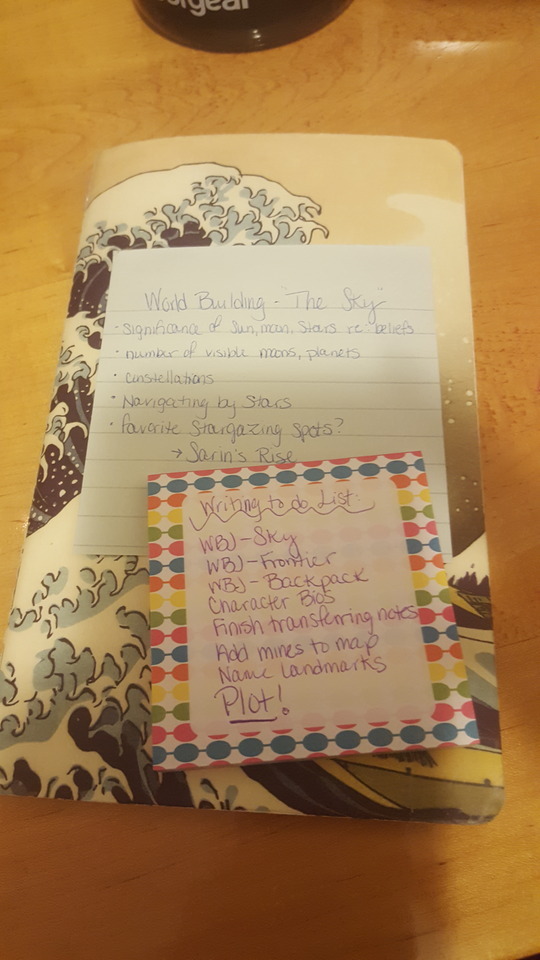 World Building - "The Sky"
• Significance of Sun, moon, Stars re: beliefs
• number of visible moons, planets
• constellations
• Navigating by Stars
• Favorite Stargazing Spots?
→ Sarin's Rise
Writing to do List:
WBJ - Sky
WBJ - Frontier
WBJ - Backpack
Character Bios
Finish transferring notes
Add mines to map
Name Landmarks
Plot!